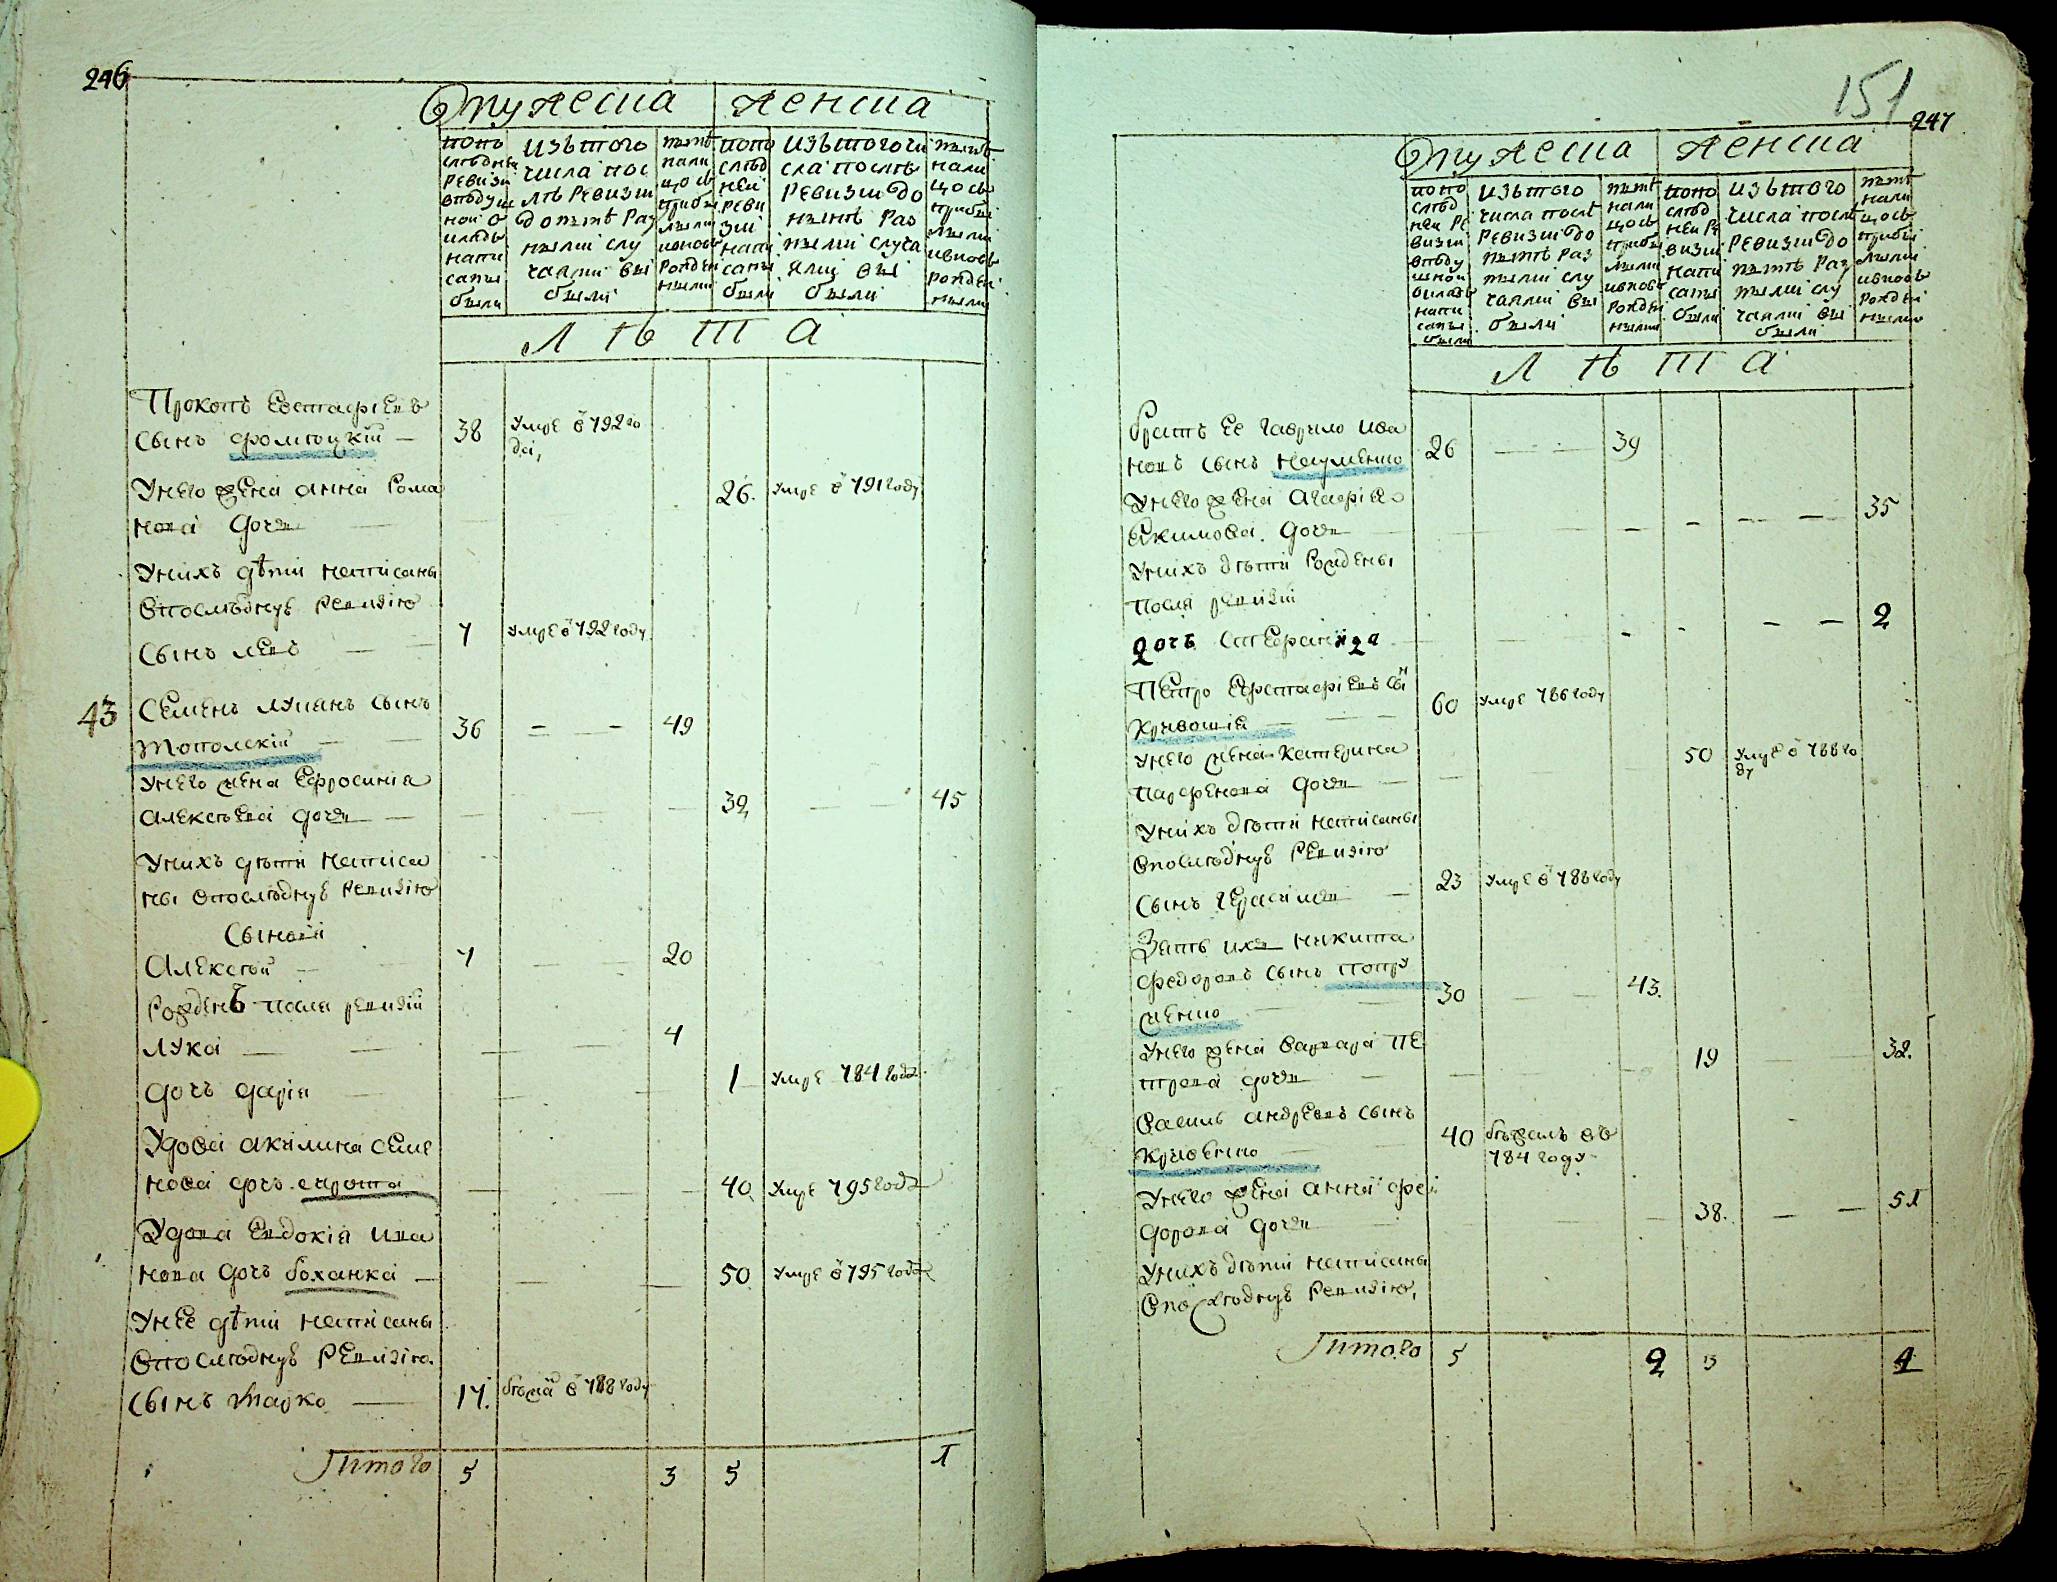 246
мужеска женска
попо
следней
ревизи
были
изъ того
числа пос
лѣ ревизіи
до нынѣ раз
ными слу
чаями вы
были
нынѣ
нали
цо съ
попо
слѣд
ней
реви
зіи
напи
саны
были
изъ того чи
сла послѣ
ревизіи до
нынѣ раз
ными случа
ями вы
были
нынѣ
нали
цо съ
лѣта
Прокопъ Евстафіевъ
сынъ 38 умре в 792 го
да,
У него жена анна Рома
нова дочь 26. умре в 791 году
У нихъ дѣти написаны
в последную ревизію
сынъ левъ 7 умре в 792 году
43 Семенъ лукянъ сынъ
Тополскій 36 49
У него жена Ефросинія
алексѣева дочь 39 45
У нихъ дѣти написа
ны в последную ревизію
сыновя
Алексѣй 7 20
Рожденъ после ревизіи
лука 4
дочь дарія 1 умре 784 года.
Удова акилина семе
нова дочь сирота 40 умре 795 года
Удова Евдокія ива
нова дочь боханка 50 умре в 795 года
У нее дѣти написаны
в последную ревизію.
сынъ марко 17. в 788 году
Итого 5 3 5 1
151
247
мужеска женска
попо
слѣд
ней ре
визіи
были
изъ того
числа послѣ
ревизіи до
нынѣ раз
ными слу
чаями вы
были
нынѣ
нали
цо съ
попо
слѣд
ней ре
визіи
напи
саны
были
изъ того
числа послѣ
ревизіи до
нынѣ раз
ными слу
чаями вы
были
нынѣ
нали
цо съ
лѣта
братъ ее гаврило ива
новъ сынъ Науменко 26 39
У него жена агафія
Екимова дочь 35
У нихъ дѣти рождены
после ревизіи
дочь 2
Петро Евстафіевъ снъ
Кривошія 60 умре 786 году
У него жена Катерина
парфенова дочь 50 умре в 788 го
ду
У нихъ дѣти написаны
в последную ревизію
сынъ герасимъ 23 умре в 788 году
Зять ихъ никита
федоровъ сынъ
30 43.
У него жена варвара пе
трова дочь 19 32.
василь андреевъ сынъ
Кривенко 40 бѣжалъ въ
784 году
У него жена анна фео
дорова дочь 38. 51
У нихъ дѣти написаны
в последную ревизію,
Итого 5 2 3 4